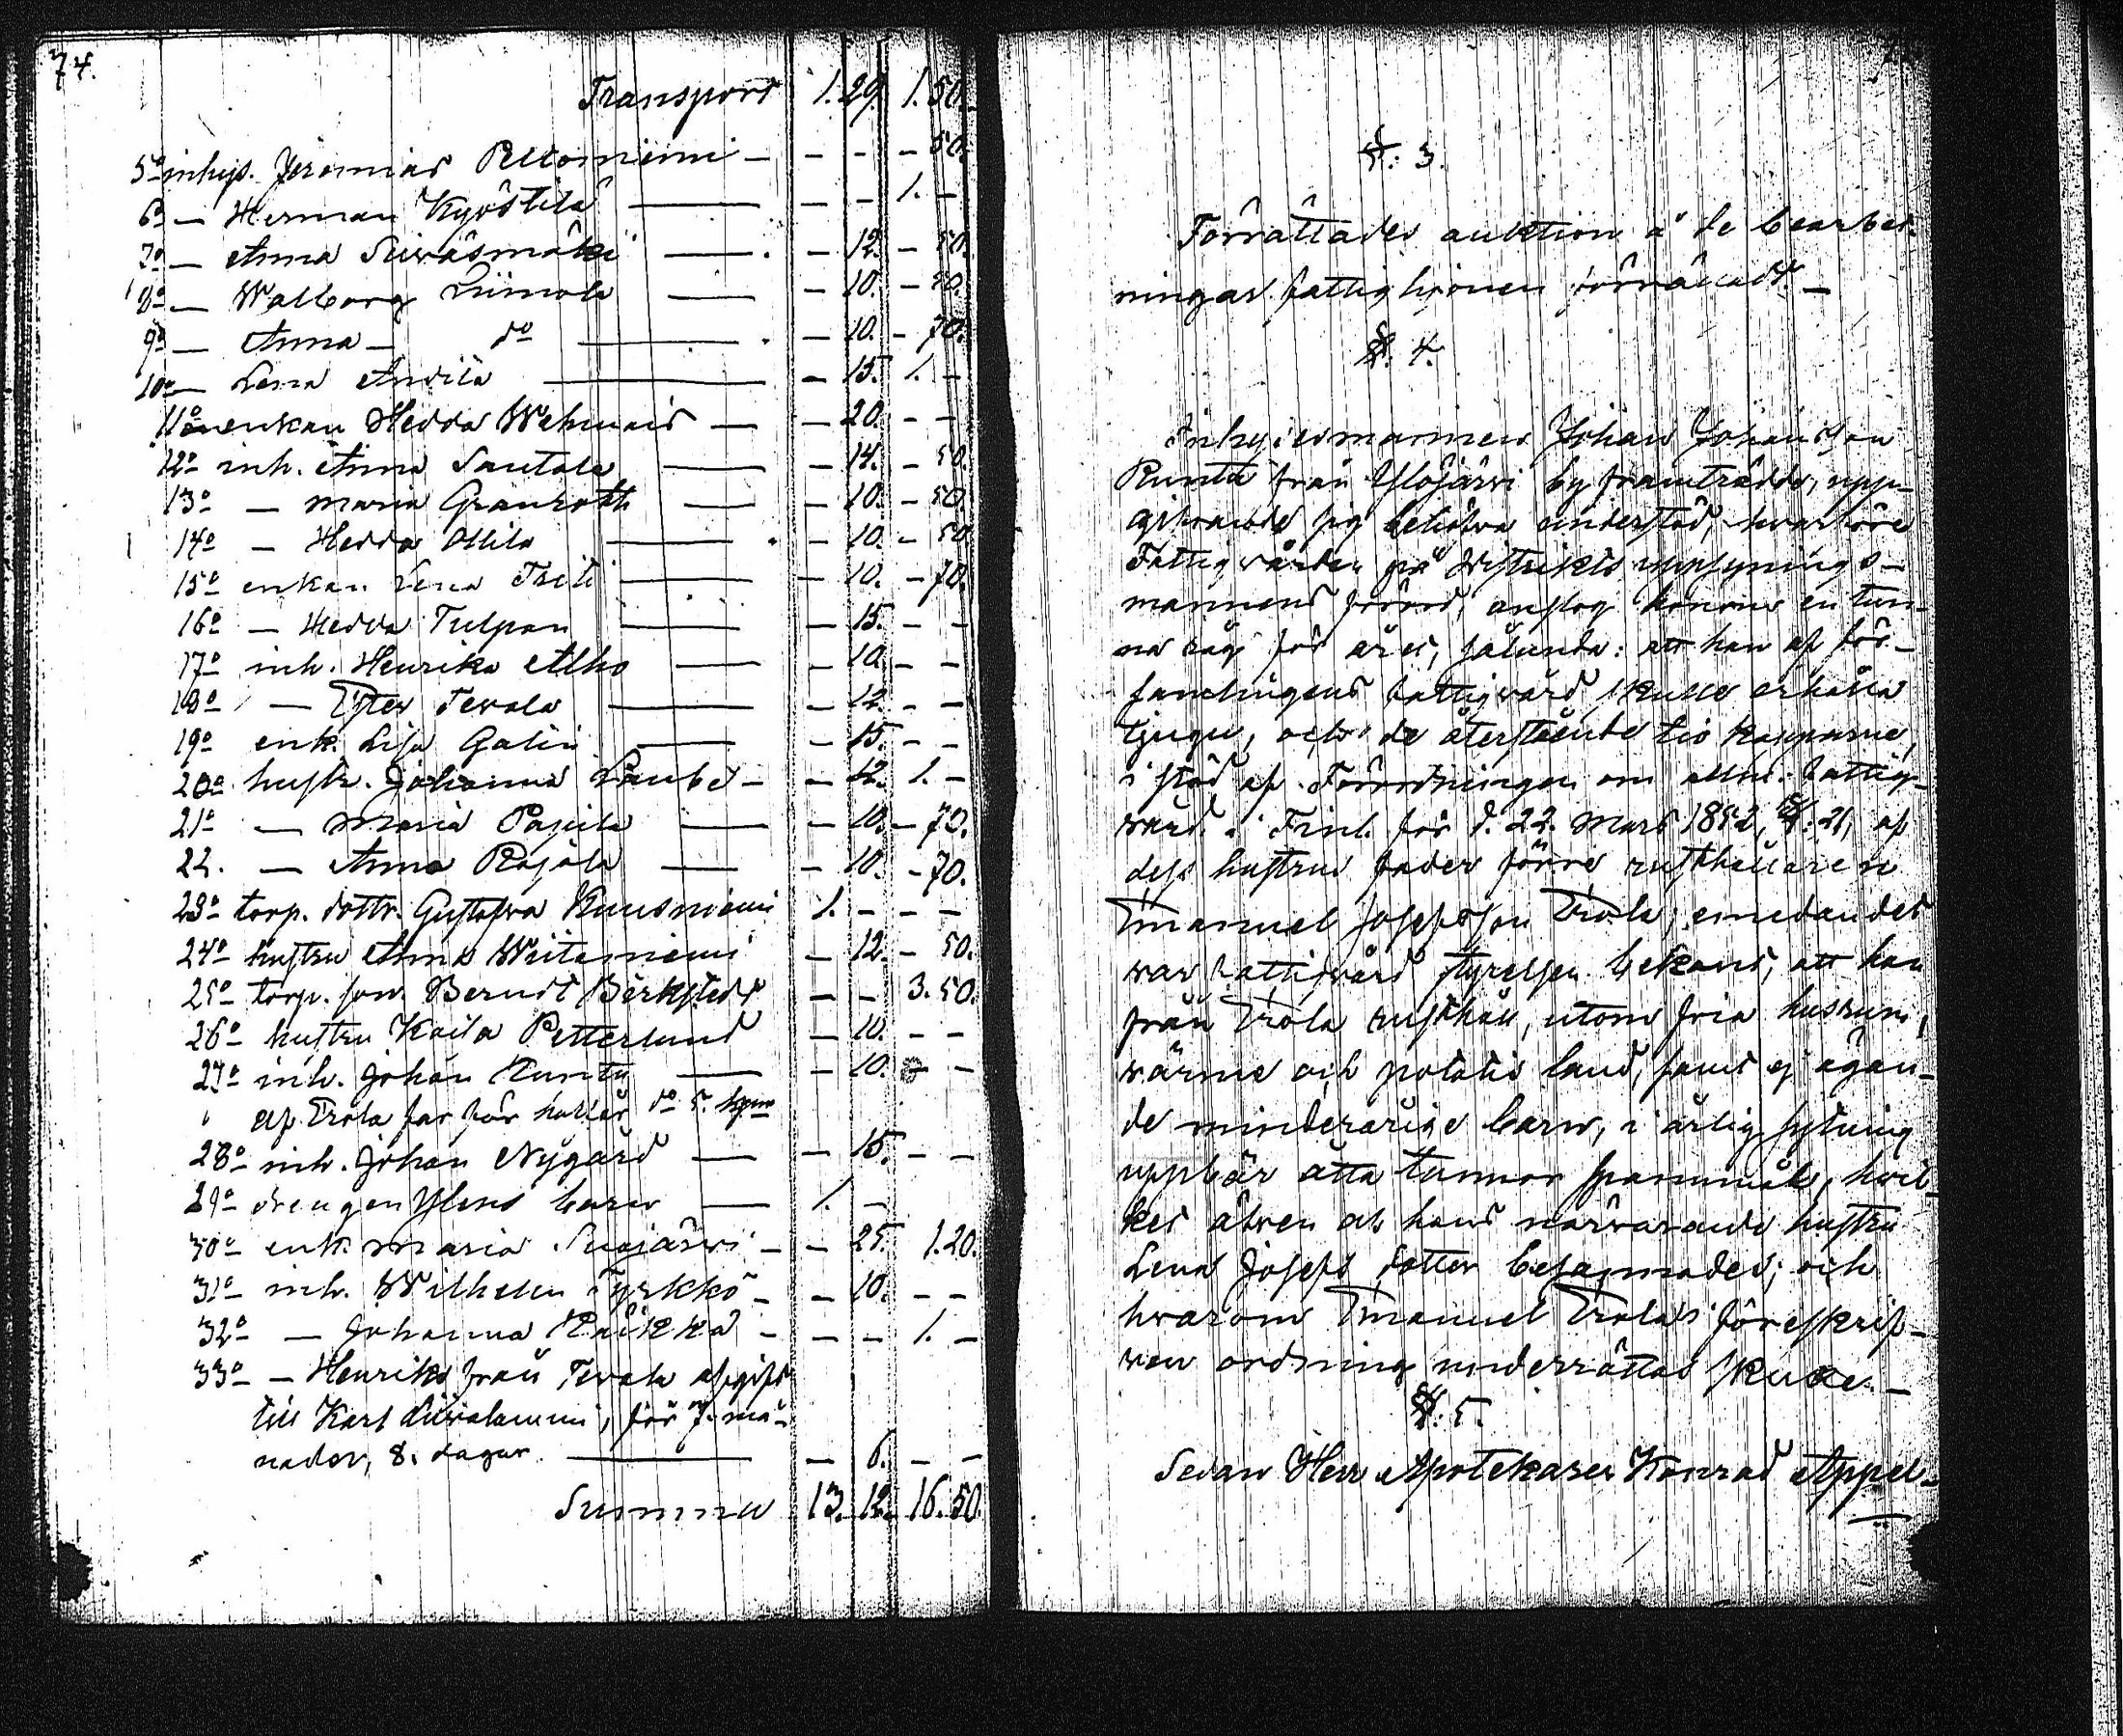 74.
Transport 1. 29. 1. 50.
5o inhys. Jeremias Peltoniemi — — — — 50.
6o — Herman Kyöstilä — — — 1. —
7o — Anna Suirasmäki — — 12. — 50.
8o — Walborg Liimola — — 10. — 50.
9o — Anna — do — — 10. — 70.
10o — Lena Anvila — — 15. 1. —
11o enkan Hedda Wehmais — — 20. — —
12o inh. Anna Santala — — 14. — 50.
13o — Maria Granroth — — 10. — 50.
14o — Hedda Ollila — — 10. — 50
15o enkan Lena — — 10. — 70.
16o — Hedda Tulpan — — 15. — —
17o inh. Henrika Alho — — 10. — —
18o — Ester Tevala — — 12. — —
19o enk. Lisa Galin — — 15. — —
20o hustr. Johanna — — 12. 1. —
21o — Maria Papila — — 10. — 70.
22. — Anna Rajala — — 10. — 70.
23o torp. dottr. Gustafva Kuusniemi 1. — — —
24o hustru Anna Wiitaniemi — 12. — 50.
25o torp. son. Berndt Berkstedt — — 3. 50.
26o hustru Kaisa Petterlund — 10. — —
27o inh. Johan Runta — — 10. — —
af Trola far får do 5.
28o inh. Johan Nygård — — 15. — —
29o drengen Ylens barn — 1. —
30o enk. Maria Suojärvi — — 25. 1. 20.
31o inh. Wilhelm Tyrkkö — — 10. — —
32o — Johanna Räikkä — — — 1. —
33o — Henriks från Tevala afgift
till Karl Liivalammi, för 7. må-
nader, 8. dagar. — — 6. — —
Summa 13. 12. 16. 50.
§: 3.
Förrättades auktion å de bearbet-
ningar fattighjonen förrättadt. —
§. 4.
Inhysesmannen Johan Johansson
Runta från Ylöjärvi by framträdde, upp-
gifvande sig behöfva understöd, hvarföre
Fattigvården på distrikts uppsynings-
mannens förord, anslog honom en tun-
na råg för året, sålunda: att han af för-
samlingens fattigvård skulle erhålla
tjugu, och de återstående tio kapparne,
i stöd af Förordningen om allm. fattig-
vård i Finl. för d. 22. Mars 1852, §: 21, af
dess hustrus fader förre rusthållaren
Emanuel Josefsson Trola, emedan det
var fattigvårdstyrelsen bekant, att han
från Trola rusthåll, utom fria husrum,
värme och potatis land, samt ej ägan-
de minderårige barn, i årlig sytning
uppbär åtta tunnor spannmål, hvil-
ket äfven af hans närvarande hustru
Lena Josefs dotter besannades; och
hvarom Emanuel Trola i föreskrif-
ven ordning underrättas skulle. —
§: 5.
Sedan Herr Apotekaren Konrad Appel-